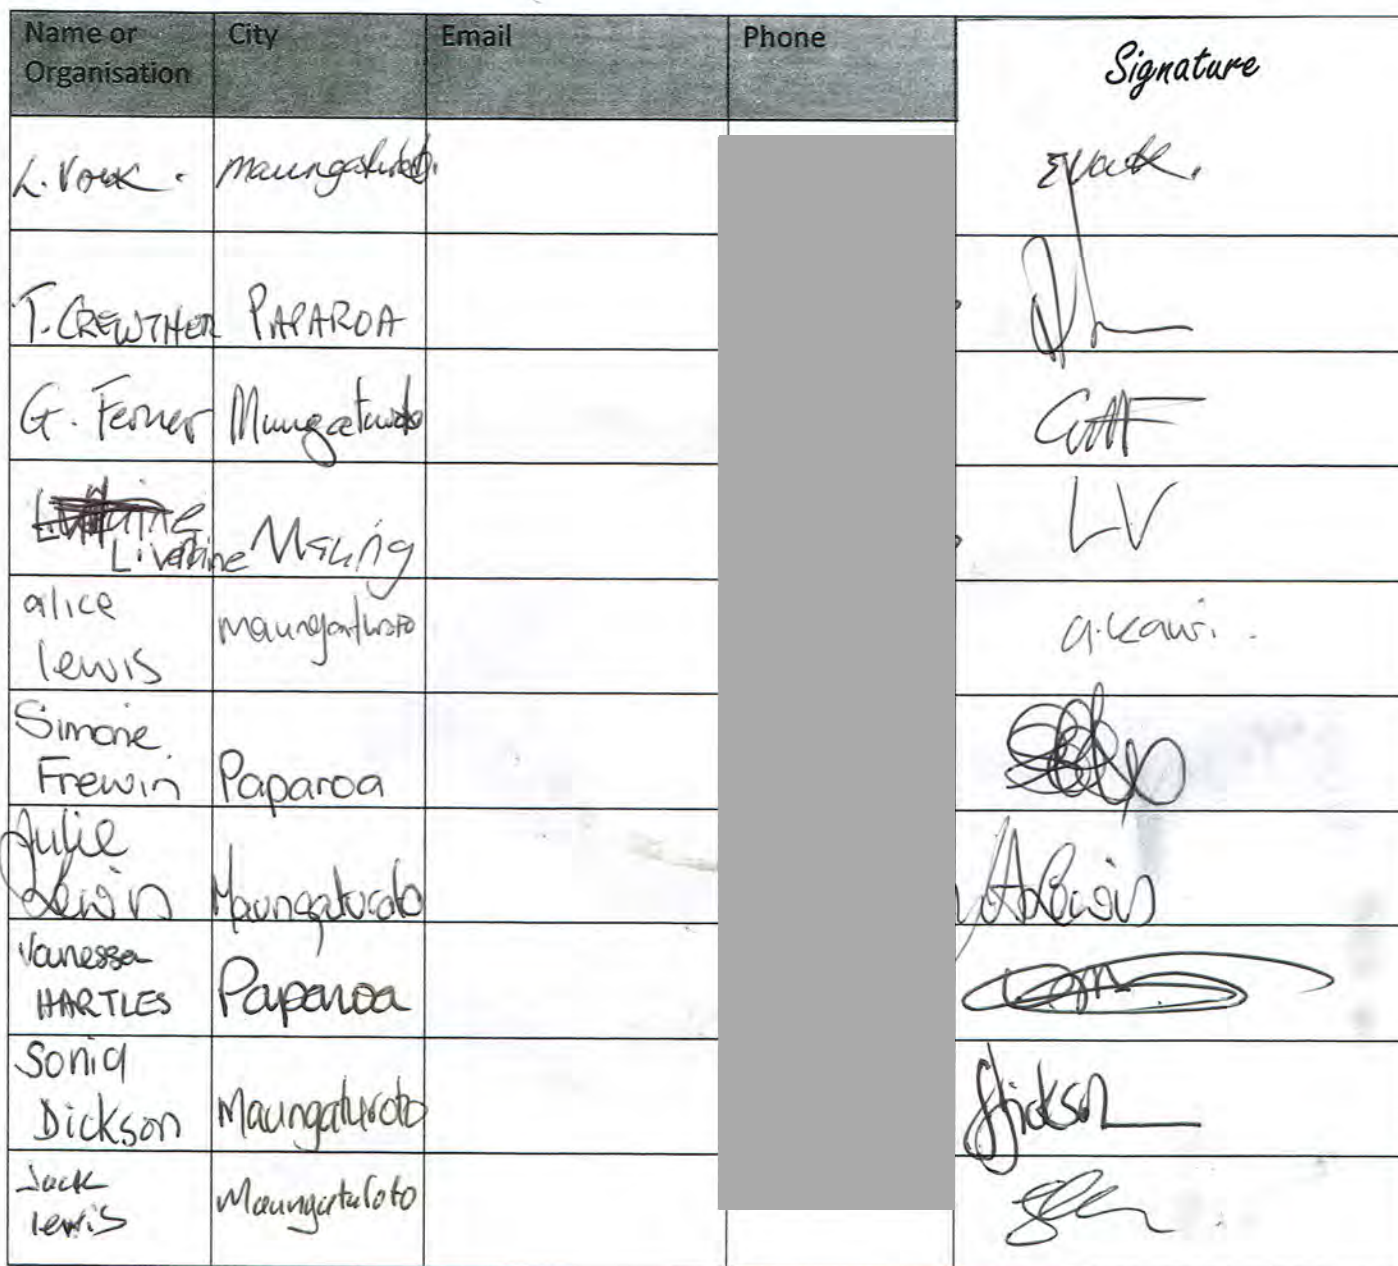 Name or Organisation City Email Phone Signature
L. Vouk. maungaturoto.
T. CREWTHER PAPAROA
G. Ferner Mungaturoto GMF
Liveraine Maung LV
alice lewis maungaturoto a.kawi.
Simone Frewin Paparoa
Julie Lewin Maungaturoto JALewin
Vanessa HARTLES Paparoa
Sonia Dickson Maungaturoto SDickson
Jack lewis Maungaturoto